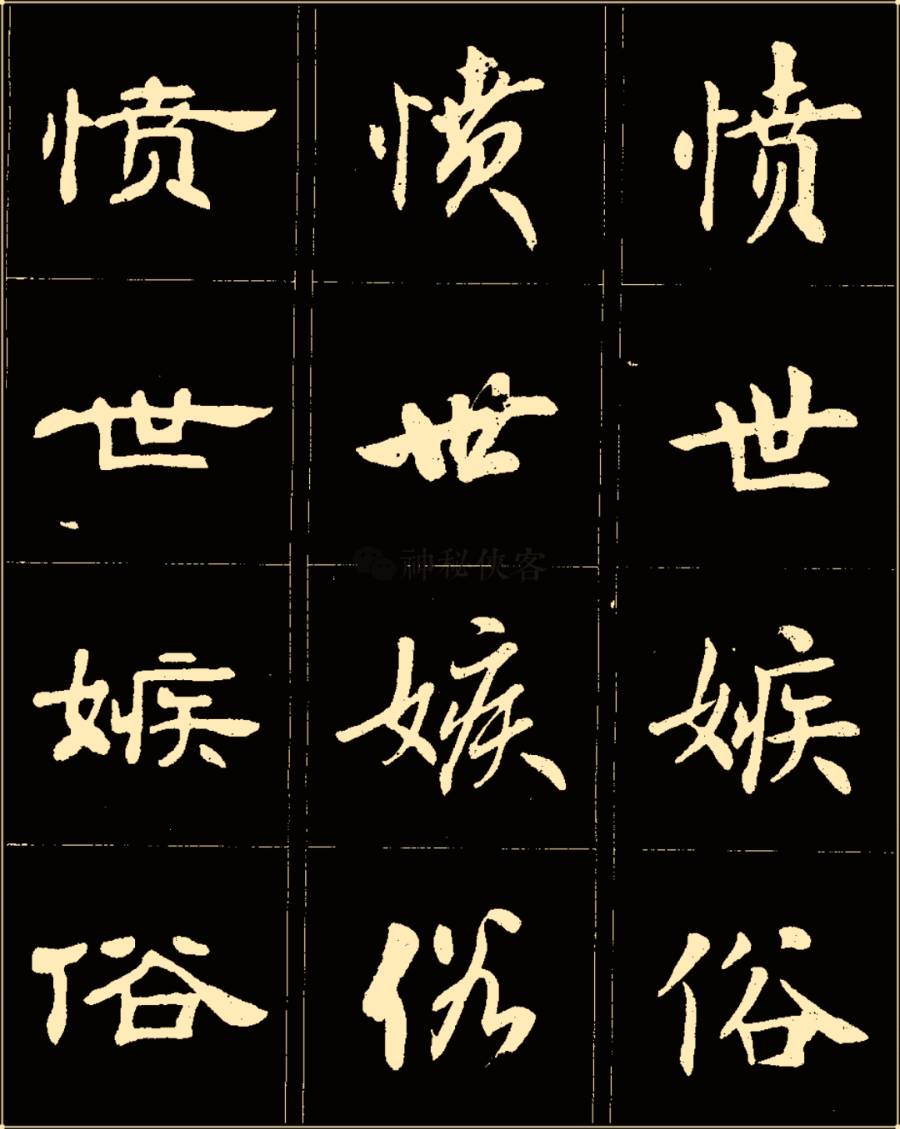 愤愤愤
世世世
嫉嫉嫉
俗俗俗
神秘侠客